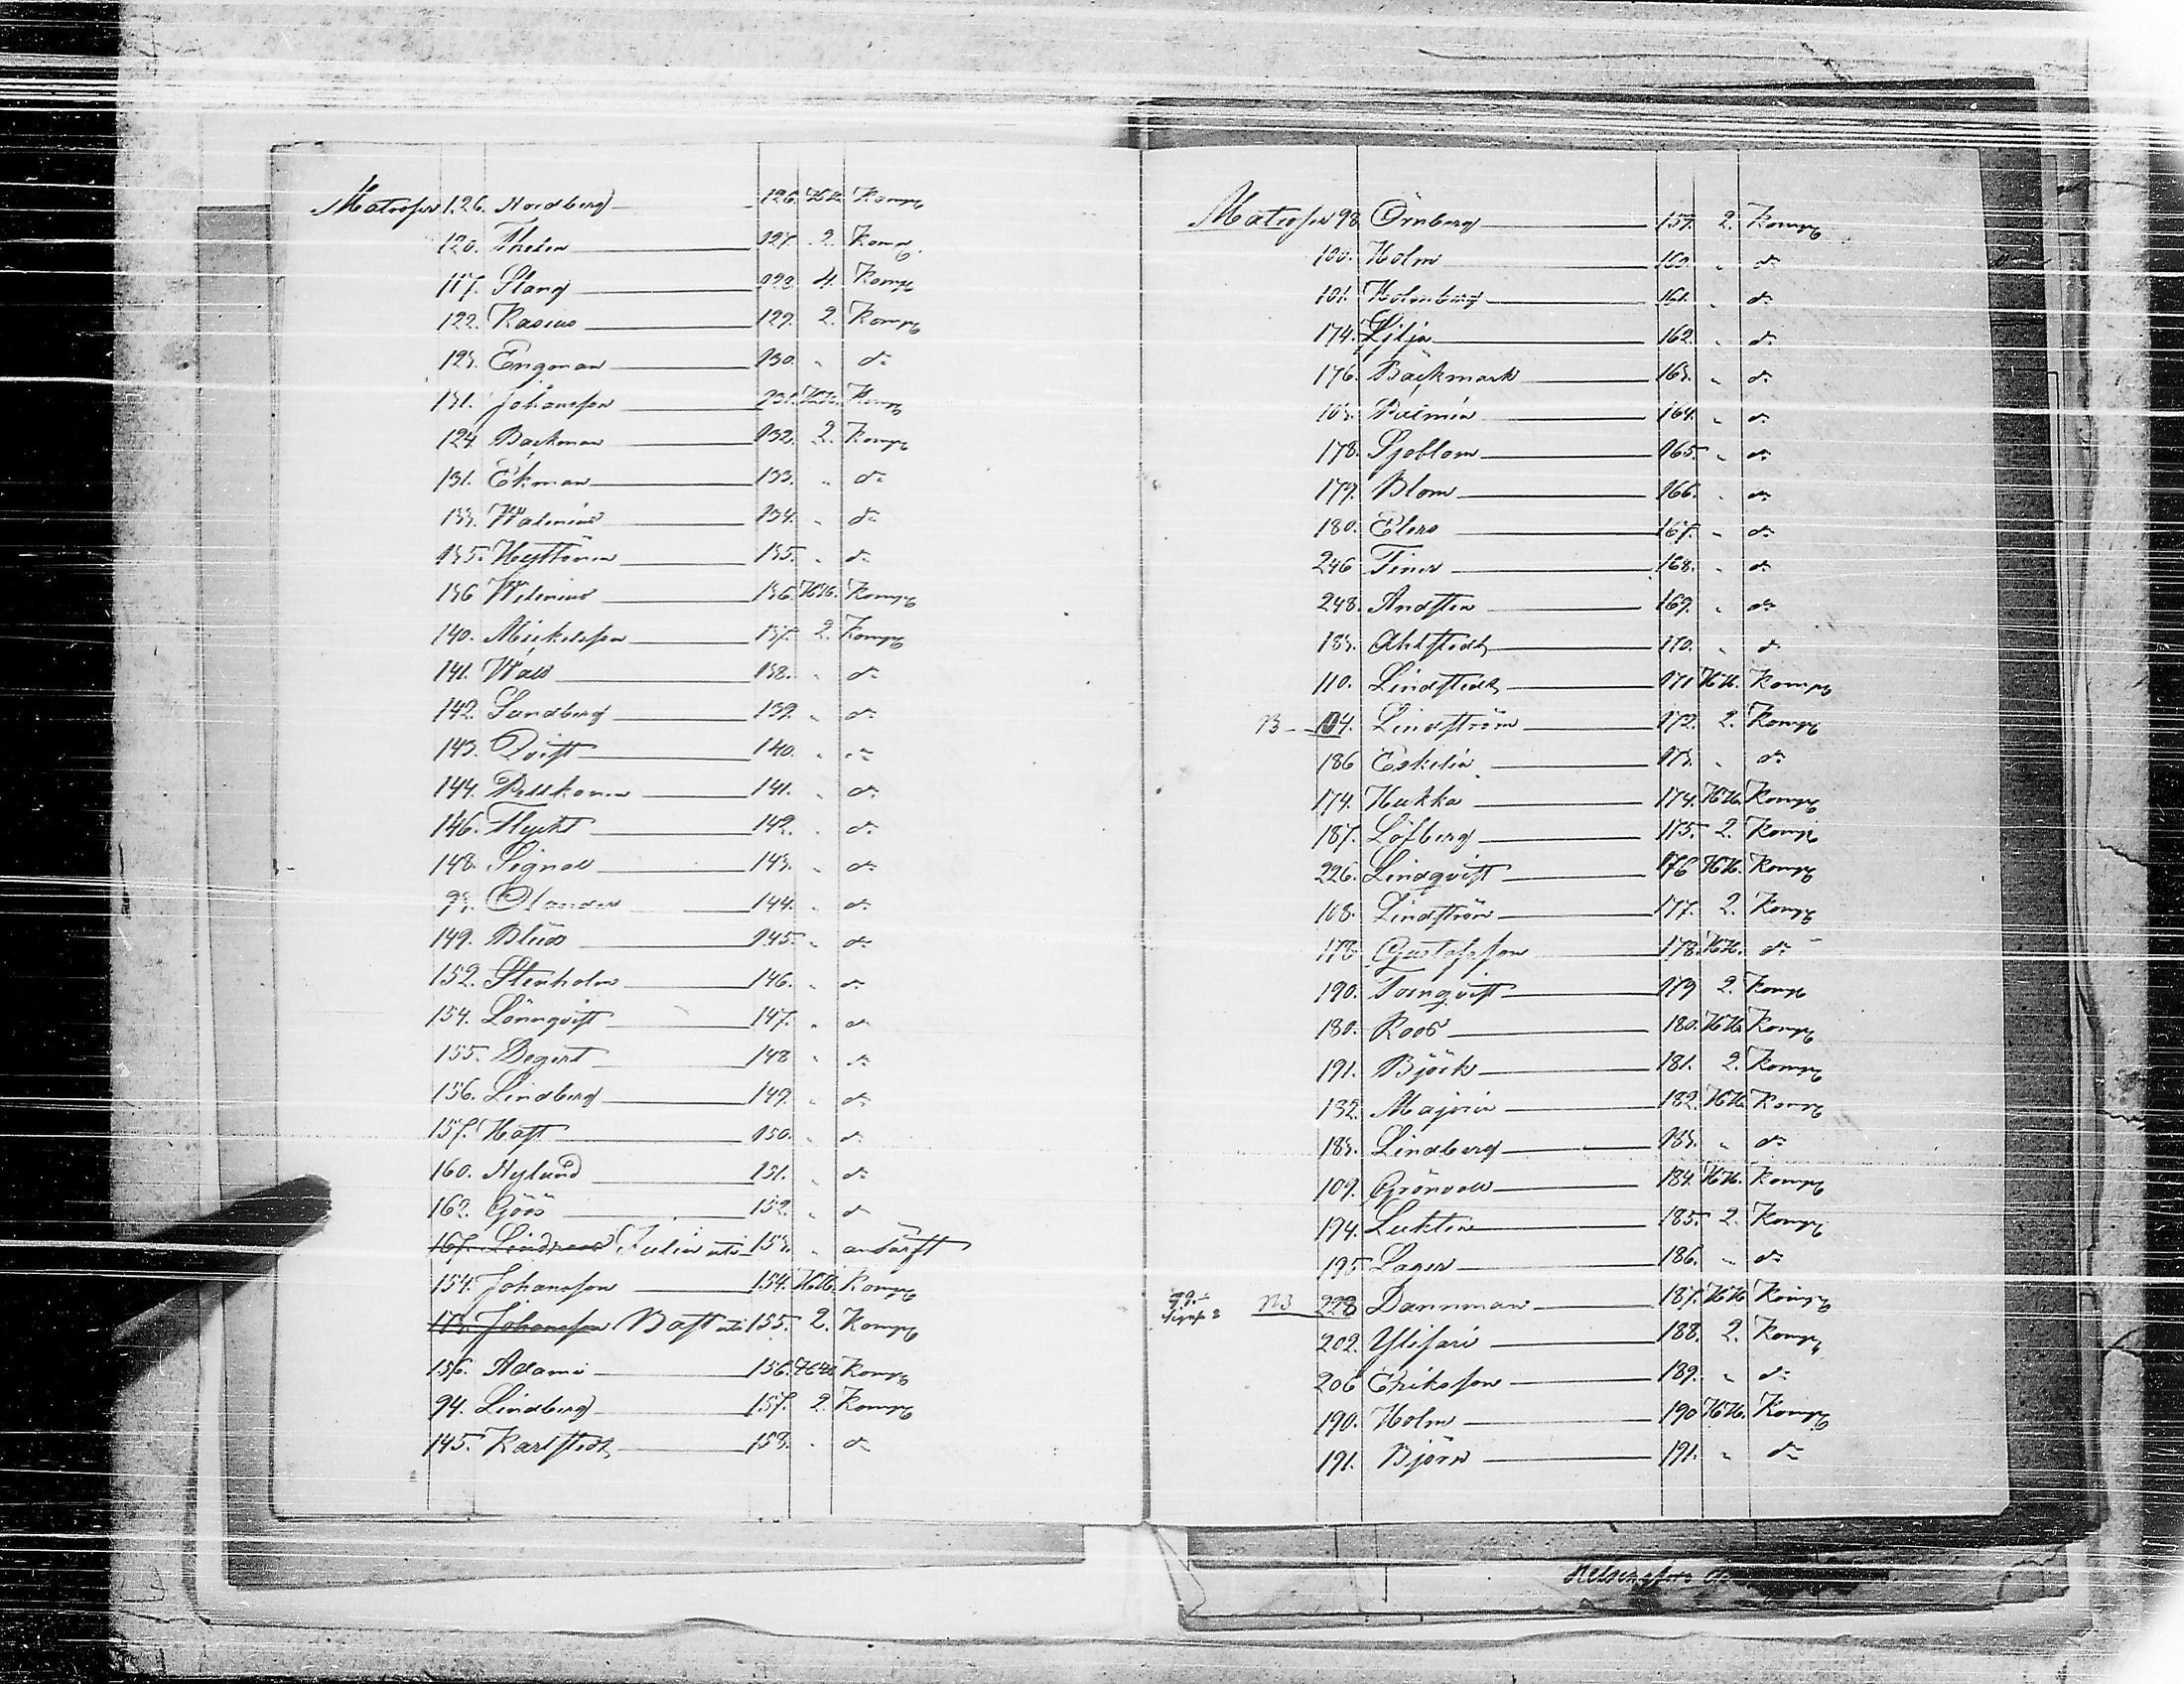 Matroser 126. Nordberg 126. HK. Komp
120. Thelen 127. 2. Komp.
117. Stang 128 4. Komp
122. Rasius 129. 2. Komp
123. Engman 130. " do
131. Johansson 131. HK. Komp
124. Backman 132. 2. Komp
131. Ekman 133. " do
133. Walenius 134. " do
135. Hyttönen 135. " do
136 Wilenius 136. HK. Komp
140. Mickelsson 137. 2. Komp
141. Wass 138. " do
142. Sundberg 139. " do
143. Qvist 140. " do
144. Pellkonen 141. " do
146. Flyckt 142. " do
148. Signal 143. " do
93. Olander 144. " do
149. Blad 145. " do
152. Stenholm 146. " do
154. Lönnqvist 147. " do
155. Degert 148 " do
156. Lindberg 149. " do
157. Hast 150. " do
160. Nylund 151. " do
162. Göös 152. " do
167. Lindroos Julin 153. "
154. Johansson 154. HK. Komp
Johansson Bast 155. 2. Komp
156. Adami 156. HK Komp
94. Lindberg 157. 2. Komp
145. Karlstedt 158. " do
Matroser 98 Örnberg 159. 2. Komp
100. Holm 160. " do
101. Holmberg 161. " do
174. Lilja 162. " do
176. Bäckmark 163. " do
103. 164. " do
178. Sjöblom 165. " do
179. Blom 166. " do
180. Elers 167. " do
246 Finer 168. " do
248. Andsten 169. " do
183. Ahlstedt 170. " do
110. Lindstedt 171 HK. Komp
104. Lindström 172. 2. Komp
186 Eskelin 173. " do
174. Hukka 174. HK Komp
187. Löfberg 175. 2. Komp
226. Lindqvist 176 HK. Komp
108. Lindström 177. 2. Komp
178 Gustafsson 178. HK. do
190. Törnqvist 179 2. Komp
180. Roos 180. HK Komp
191. Björk 181. 2. Komp
182. Majorin 182. HK Komp
183. Lindberg 183. " do
109. Grönvall 184. HK. Komp
194. Luktin 185. 2. Komp
195 Lager 186. " do
NB 228 Dannman 187. HK Komp
202. Ylifari 188. 2. Komp
206 Eriksson 189. " do
190. Holm 190 HK. Komp
191. Björn 191. " do
Helsingfors